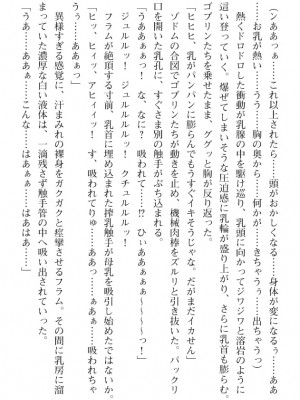 （ンああっ…これ以上されたら……頭がおかしくなる……身体が変になるぅ……ああ
……お乳が熱い……うう……胸の奥から……何かが……きちゃうぅ……出ちゃうっ）
　熱くドロドロした衝動が乳腺の中を駆け巡り、乳頭に向かってジワジワと溶岩のように
這い登っていく。爆ぜてしまいそうな圧迫感に乳輪が盛り上がり、さらに乳首も膨らむ。
ゴブリンたちを乗せたまま、ググッと胸が反り返った。
「ヒヒヒ、乳がパンパンに膨らんでもうすぐイキそうじゃな。だがまだイカせん」
　ゾドムの合図でゴブリンたちが動きを止め、機械肉棒をズルリと引き抜いた。パックリ
口を開いた乳孔に、すぐさま別の触手がぶち込まれる。
「うああぁぁっ！　な、なに？　吸われて……⁉　ひぃああぁぁぁ～～～～っ！」
　ジュルルルッ！　ジュルルルルッ！　クチュルルルッ！
「ヒッ、ヒィッ、アヒィィッ！　す、吸われてりゅ……ああっ……ぁぁぁっ……吸われちゃ
　フラムが絶頂する寸前、乳首に埋め込まれた搾乳触手が母乳を吸引し始めたではないか。
うぅ……ああぁぁぁっ！」
　異様すぎる感覚に、汗まみれの裸身をガクガクと痙攣させるフラム。その間に乳房に溜
まっていた濃厚な白い液体は、一滴残さず触手管の中へ吸い出されていった。
「うあ……あああっ……こんな……はぁぁ……はああっ」